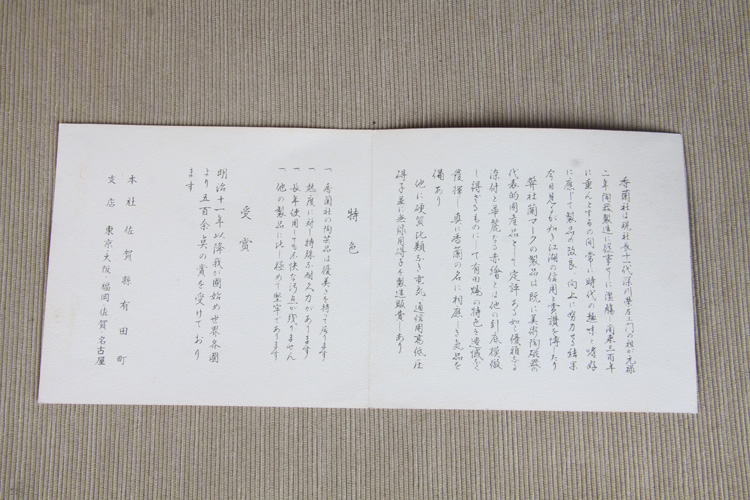 香蘭社は現社長十一代深川栄左ヱ門の祖が元禄
二年陶器製造に従事せしに濫觴し閲来三百年
に垂んとするの間常に時代の趣味と嗜好
に應じて製品の改良、向上に努力せる結果
今日見るが如く江湖の信用と賞讃を博したり
弊社蘭マークの製品は既に美術陶磁器の
代表的国産品として定評ある如く優雅なる
染付と華麗なる赤繪とは他の到底模倣
し得ざるものにして有田焼の特色を遺憾なく
發揮し真に香蘭の名に相應しき気品を
備あり
他に硬質比類なき電気、通信用高低圧
碍子並に無線用碍子を製造販賣しあり
特色
一、香蘭社の陶業品は優美さを持って居ります
一、熱度に対し特殊な耐久力があります
一、長年使用しても不快な汚点が残りません
一、他の製品に比し極めて堅牢であります
受賞
明治十一年以降我が國始め世界各國
より五百余点の賞を受けており
ます
本社 佐賀縣有田町
支店 東京・大阪・福岡 佐賀 名古屋